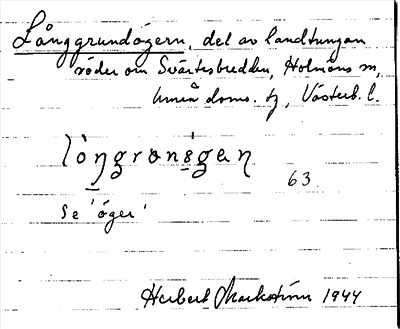 Långgrundögern, del av landtungan
söder om Svärtesbredden, Holmöns sn,
Umeå doms. tg, Västerb. l.
63
se 'öger'
Herbert Markström 1944